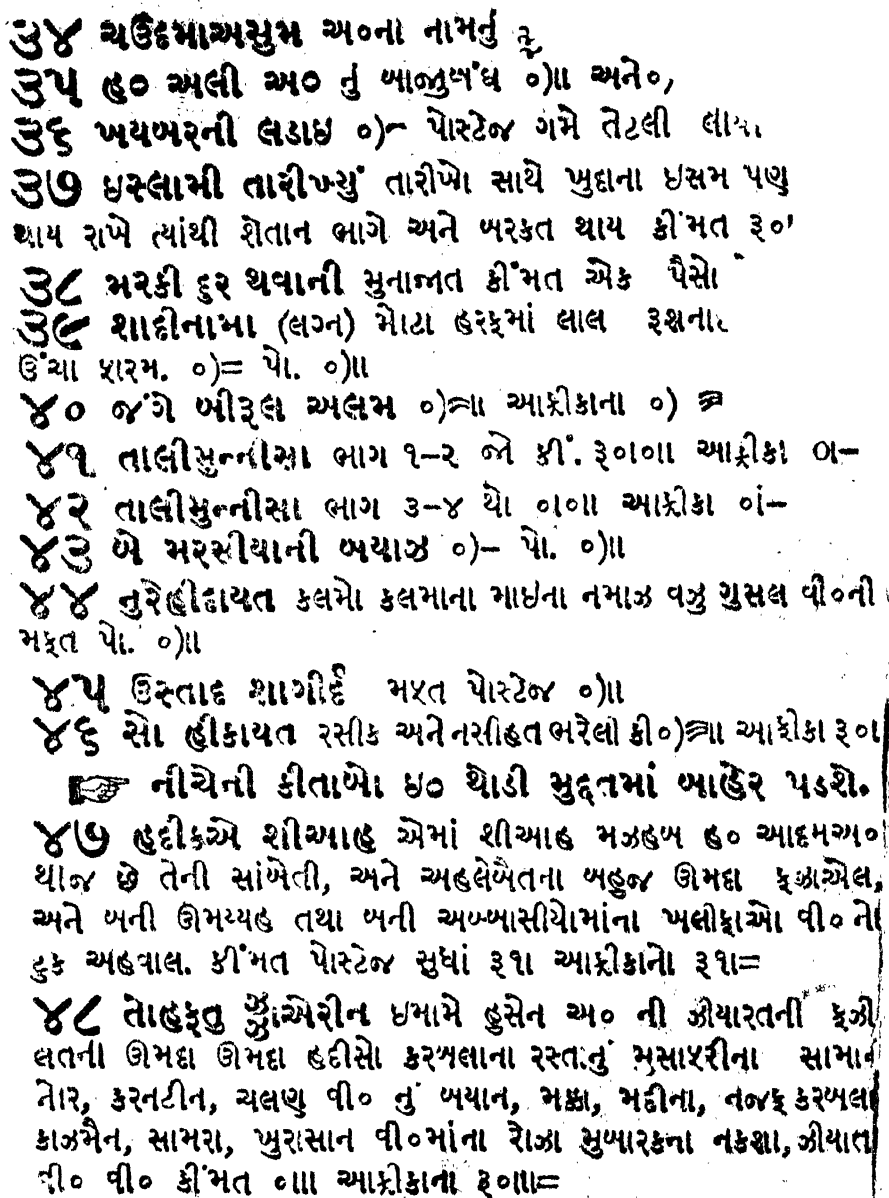 ૩૪ ચઉદમાઅસુમ અ૦ના નામનું
૩૫ હ૦ અલી અ૦ નું બાજુબંધ ૦)॥ અને૦,
૩૬ ખયબરની લડાઇ ૦)~ પોસ્ટેજ ગમે તેટલી
૩૭ ઇસ્લામી તારીખ્યું તારીખો સાથે ખુદાના ઇસમ પણ
થાય રાખે ત્યાંથી શેતાન ભાગે અને બરકત થાય કીંમત રૂ૦
૩૮ મરકી દુર થવાની મુનાજાત કીંમત એક પૈસો
૩૯ શાદીનામા (લગ્ન) મોટા હરફમાં લાલ
ઉંચા ફારમ. ૦)= પો. ૦)॥
૪૦ જંગે બીરૂલ અલમ ૦)≡॥ આફ્રીકાના ૦) ≡
૪૧ તાલીમુન્નીસા ભાગ ૧–૨ જો કીં. રૂ૦ા૦॥ આફ્રીકા ૦ા–
૪૨ તાલીમુન્નીસા ભાગ ૩–૪ થો ૦ા૦॥ આફ્રીકા ૦ા–
૪૩ બે મરસીયાની બયાઝ ૦)– પો. ૦)॥
૪૪ નુરેહીદાયત કલમો કલમાના માઇના નમાઝ વઝુ ગુસલ વી૦ની
મફત પો. ૦)॥
૪૫ ઉસ્તાદ શાગીર્દ મફત પોસ્ટેજ ૦)॥
૪૬ સો હીકાયત રસીક અને નસીહત ભરેલી કી૦)≡॥ આફ્રીકા રૂ૦ા
☞ નીચેની કીતાબો ઇ૦ થોડી મુદ્દતમાં બાહેર પડશે.
૪૭ હદીકએ શીઆહ એમાં શીઆહ મઝહબ હ૦ આદમઅ૦
થીજ છે તેની સાંબેતી, અને અહલેબૈતના બહુજ ઊમદા ફઝાએલ,
અને બની ઊમય્યહ તથા બની અબ્બાસીયોમાંના ખલીફાઓ વી૦ નો
ટુક અહવાલ. કીંમત પોસ્ટેજ સુધાં રૂ૧ા આફ્રીકાનો રૂ૧ા=
૪૮ તોહફતુ ઝ્ઝાએરીન ઇમામે હુસેન અ૦ ની ઝીયારતની ફઝી
લતની ઊમદા ઊમદા હદીસો કરબલાના રસ્તાનું મુસાફરીના સામાન
નોર, કરનટીન, ચલણ વી૦ નું બયાન, મક્કા, મદીના, નજફ કરબલા
કાઝમૈન, સામરા, ખુરાસાન વી૦માંના રોઝા મુબારકના નકશા, ઝીયાત
વી૦ વી૦ કીંમત ૦ા॥ આફ્રીકાના રૂ૦ા॥=